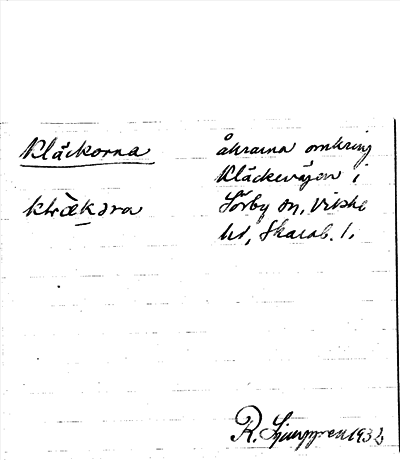 Kläckorna
klæ̀kəra
åkrarna omkring
Kläckevägen i
Sörby sn, Vilske
hd, Skarab. l.
R. Ljunggren 1932